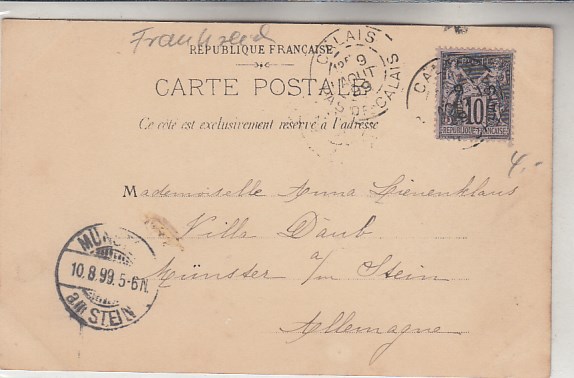 Frankreich
RÉPUBLIQUE FRANÇAISE
CARTE POSTALE
Ce côté est exclusivement réservé à l'adresse
CALAIS
9
AOUT
99
PAS DE CALAIS
10
RÉPUBLIQUE FRANÇAISE
4.-
Mademoiselle Anna Lienenklaus
Villa Daub
Münster a/m Stein
Allemagne
MÜNSTER
10.8.99. 5-6N.
am STEIN